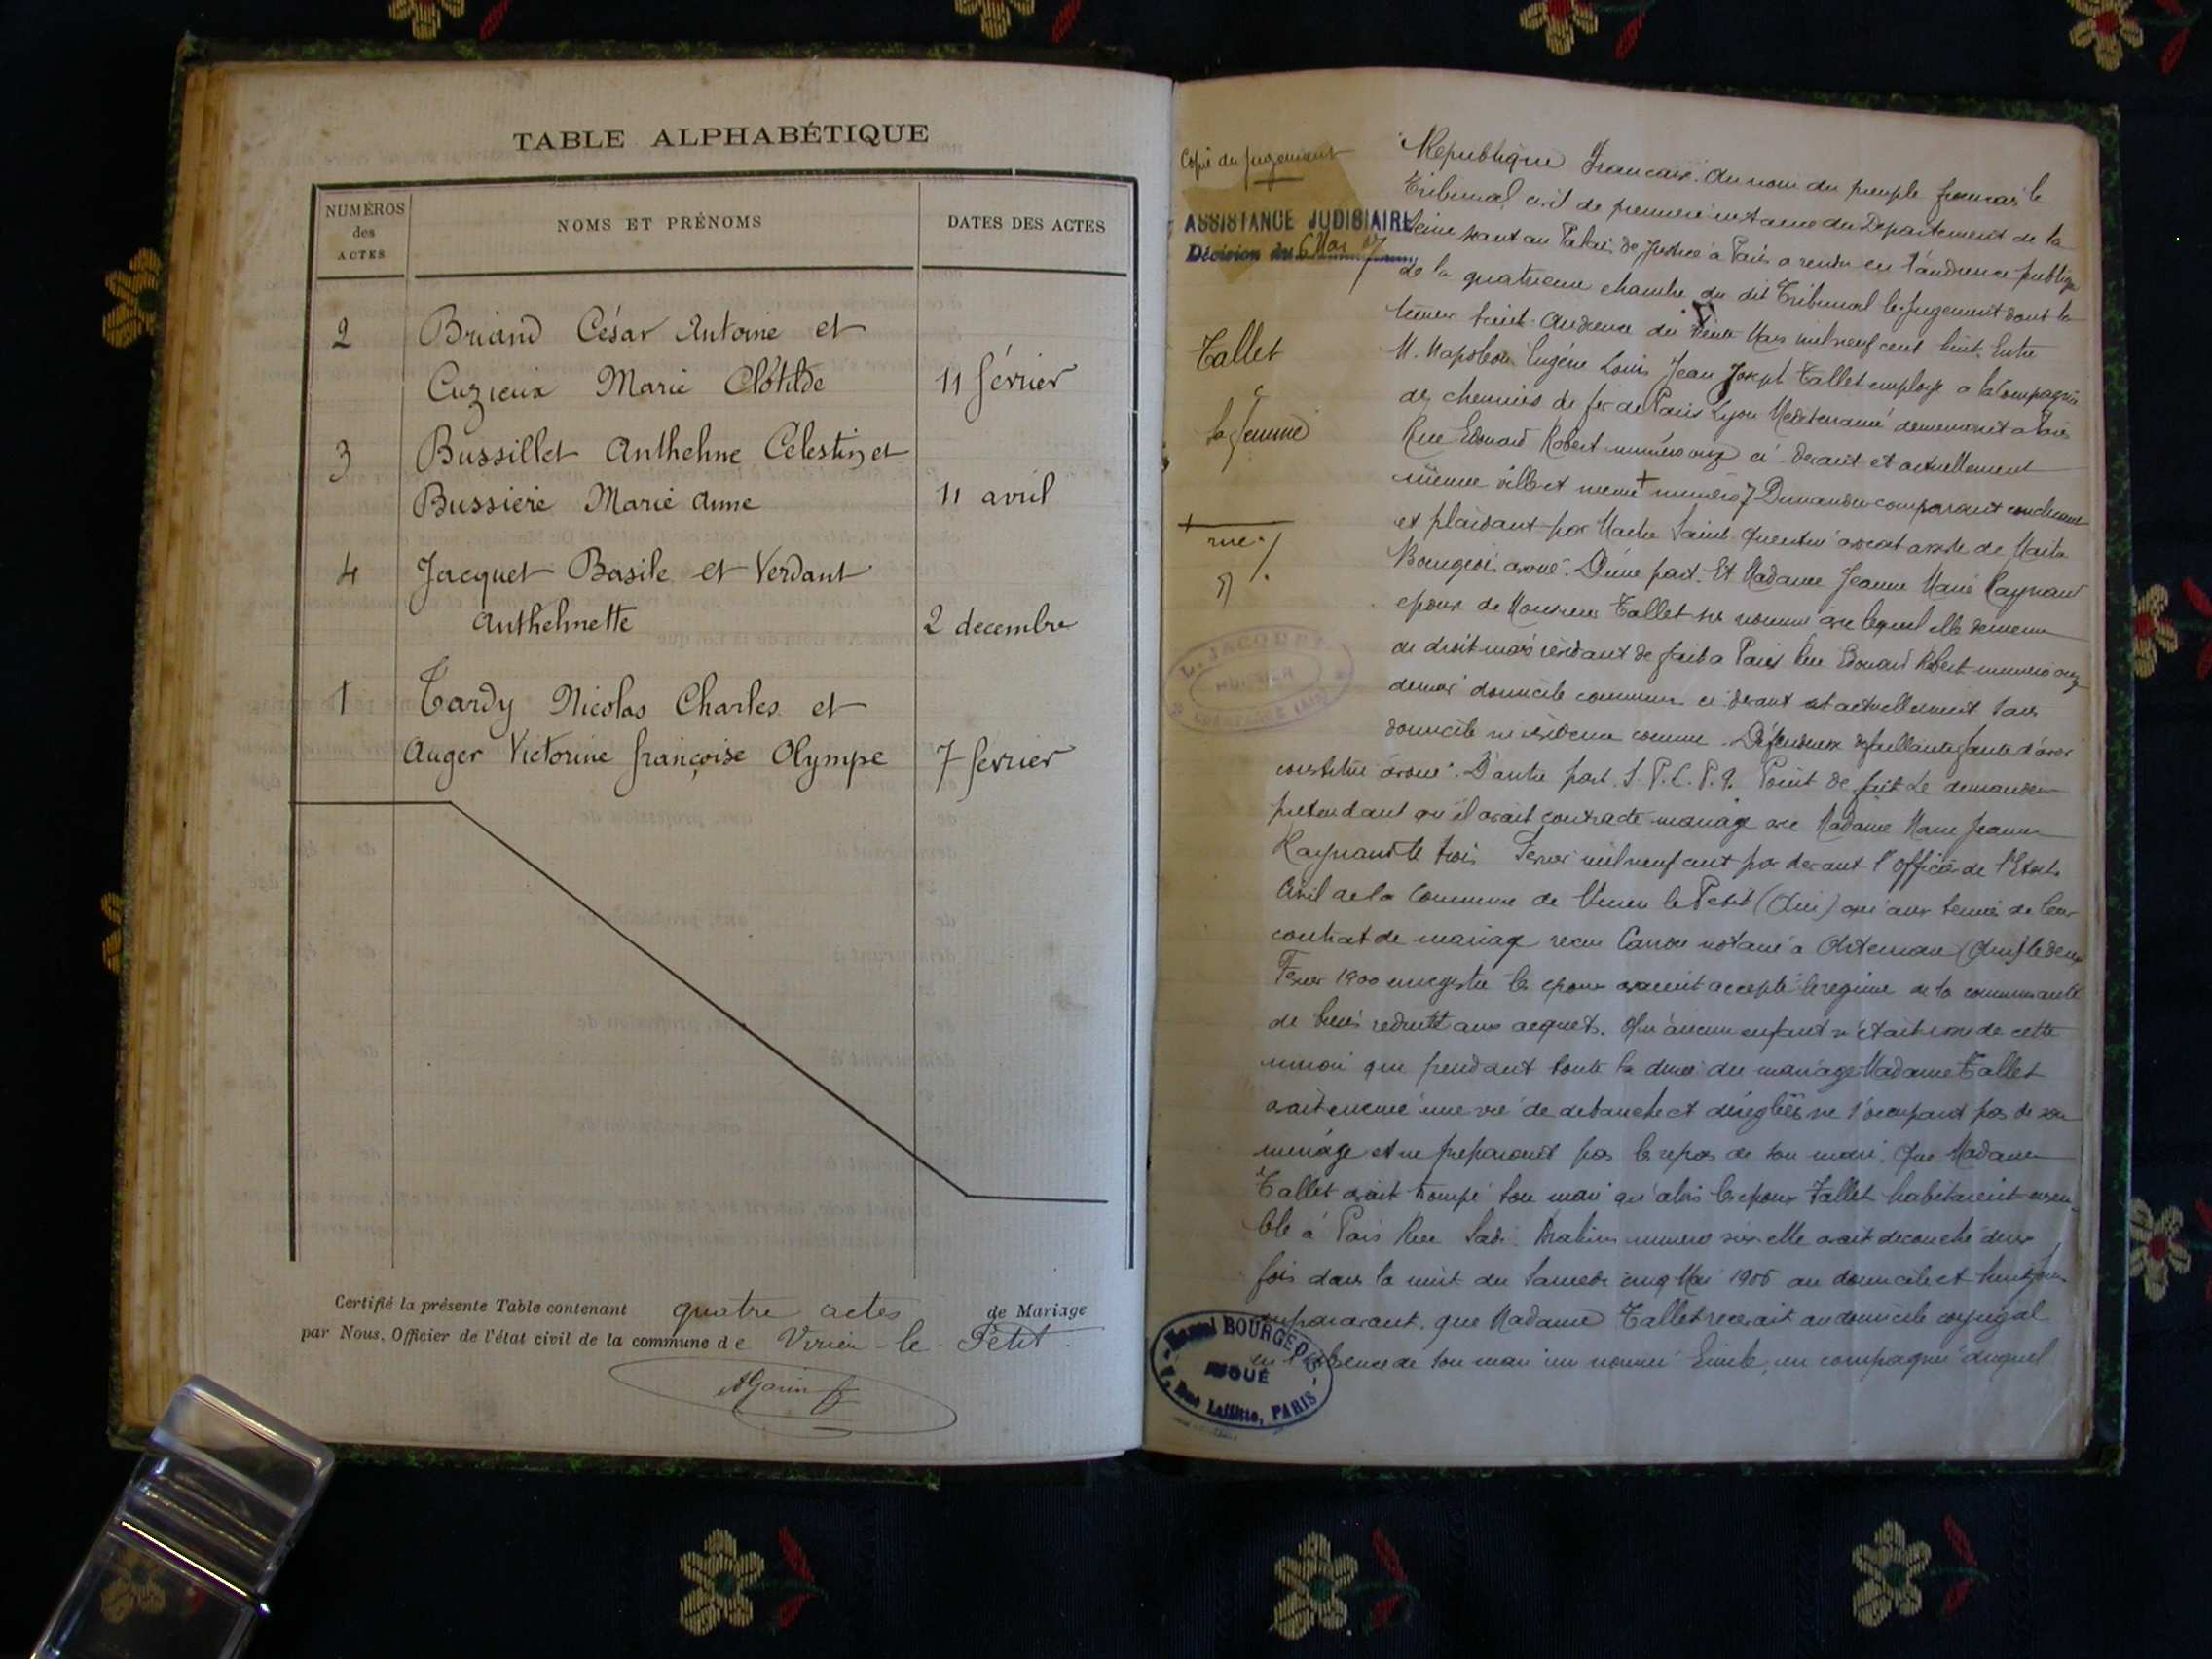 TABLE ALPHABÉTIQUE
NUMÉROS des ACTES
NOMS ET PRÉNOMS
DATES DES ACTES
2 Briand César Antoine et
Cuzieux Marie Clotilde 11 février
3 Bussillet Anthelme Celestin et
Bussiere Marie Anne 11 avril
4 Jacquet Basile et Verdant
Anthelmette 2 decembre
1 Tardy Nicolas Charles et
Auger Victorine françoise Olympe 7 fevrier
Certifié la présente Table contenant quatre actes de Mariage
par Nous, Officier de l'état civil de la commune de Virieu-le-Petit.
Copie du jugement
ASSISTANCE JUDICIAIRE
Décision du 6 Mai 07
Tallet
Sa femme
+ rue
Republique Francaise. Au nom du peuple francais le
Tribunal civil de premiere instance du Departement de la
Seine seant au Palais de Justice à Paris a rendu en l'audience publique
de la quatrieme chambre du dit Tribunal le jugement dont la
teneur suit. Audience du Mars mil neuf cent huit. Entre
M. Napoleon Eugène Louis Jean Joseph Tallet employe a la Compagnie
des chemins de fer de Paris Lyon Mediterranné demeurant a Paris
Rue Edouard Robert numero onze ci-devant et actuellement
même ville et meme + numero 7 Demandeur comparant concluant
et plaidant par Maitre Saint Quentin avocat assiste de Maitre
Bourgeois avoué. D'une part. Et Madame Jeanne Marie Raynaud
epouse de Monsieur Tallet sus nommé avec lequel elle demeure
de droit mais résidant de fait a Paris Rue Edouard Robert numero onze
dernier domicile commun ci devant et actuellement sans
domicile ni résidence connue. Défenderesse defaillante faute d'avoir
constitué avoué. D'autre part. S.P.L.P.Q. Point de fait Le demandeur
pretendant qu'il avait contracte mariage avec Madame Marie Jeanne
Raynaud le trois Fevrier mil neuf cent par devant l'Officier de l'Etat
Civil de la Commune de Virieu le Petit (Ain) qu'aux termes de leur
contrat de mariage recu notaire a Artemare (Ain) le deux
Fevrier 1900 enregistre les epoux avaient accepté le regime de la communauté
de biens reduite aux acquets. Qu'aucun enfant n'etait issu de cette
union que pendant toute la duree du mariage Madame Tallet
avait mené une vie de debauche et déréglée ne s'occupant pas de son
ménage et ne preparant pas les repas de son mari. Que Madame
Tallet avait trompé son mari qu'alors les epoux Tallet habitaient ensem-
ble à Paris Rue Sadi numero six elle avait decouché deux
fois dans la nuit du Samedi cinq Mai 1906 au domicile et huit jours
auparavant. que Madame Tallet recevait au domicile conjugal
en l'absence de son mari un nommé Emile, en compagnie duquel
BOURGEOIS
AVOUÉ
Rue Laffitte, PARIS